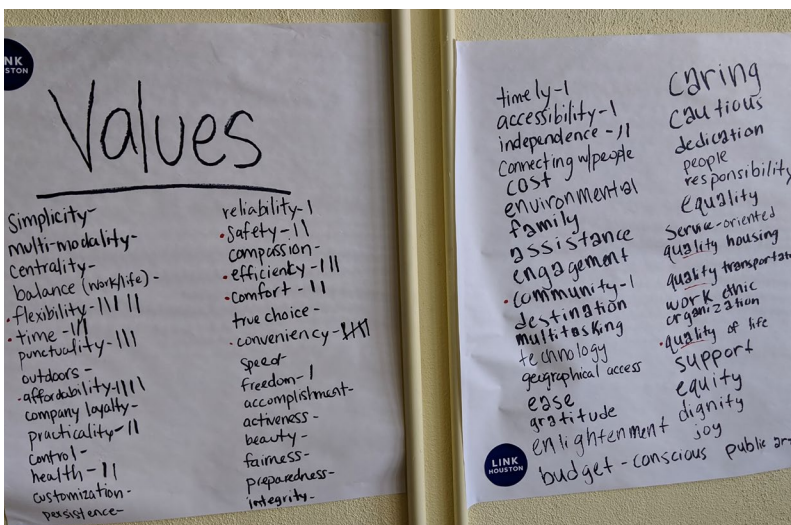 NK
STON
Values
Simplicity-
multi-modality-
Centrality-
balance (work/life)-
·flexibility-IIII II
·time-III
punctuality-III
outdoors-
·affordability-IIII
company loyalty-
practicality-II
control-
health-II
customization-
persistence-
reliability-I
·safety-II
compassion-
·efficiency-III
·comfort-II
true choice-
·conveniency-IIII
speed-
freedom-I
accomplishment-
activeness-
beauty-
fairness-
preparedness-
integrity-
timely-I
accessibility-I
independence-II
Connecting w/people
cost
environmental
family
assistance
engagement
·community-I
destination
multitasking
technology
geographical access
ease
gratitude
enlightenment
budget-conscious
caring
cautious
dedication
people
responsibility
equality
Service-oriented
quality housing
quality transportat
work ethic
organization
·quality of life
support
equity
dignity
joy
public ar
LINK
HOUSTON